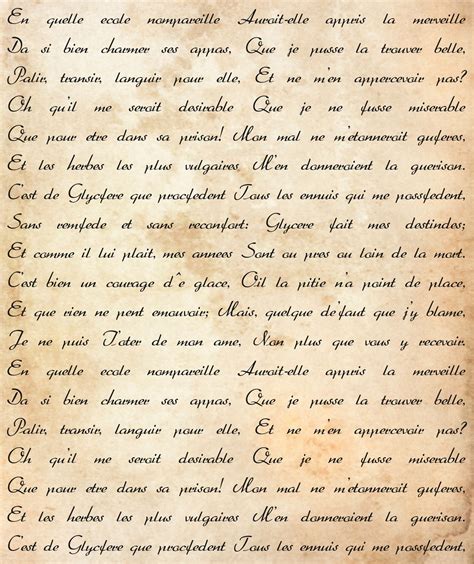 En quelle ecole nompareille Auroit-elle appris la merveille
Da si bien charmer ses appas, Que je pusse la trouver belle,
Palir, transir, languir pour elle, Et ne m'en appercevoir pas?
Oh qu'il me seroit desirable Que je ne fusse miserable
Que pour etre dans sa prison! Mon mal ne m'etonneroit guferes,
Et les herbes les plus vulgaires M'en donneroient la guerison.
C'est de Glycfere que procfedent Tous les ennuis qui me possfedent,
Sans remfede et sans reconfort: Glycere fait mes destindes;
Et comme il lui plait, mes annees Sont ou pres ou loin de la mort.
C'est bien un courage d^e glace, Oil la pitie n'a point de place,
Et que rien ne pent emouvoir; Mais, quelque de'faut que j'y blame,
Je ne puis I'oter de mon ame, Non plus que vous y recevoir.
En quelle ecole nompareille Auroit-elle appris la merveille
Da si bien charmer ses appas, Que je pusse la trouver belle,
Palir, transir, languir pour elle, Et ne m'en appercevoir pas?
Oh qu'il me seroit desirable Que je ne fusse miserable
Que pour etre dans sa prison! Mon mal ne m'etonneroit guferes,
Et les herbes les plus vulgaires M'en donneroient la guerison.
C'est de Glycfere que procfedent Tous les ennuis qui me possfedent,